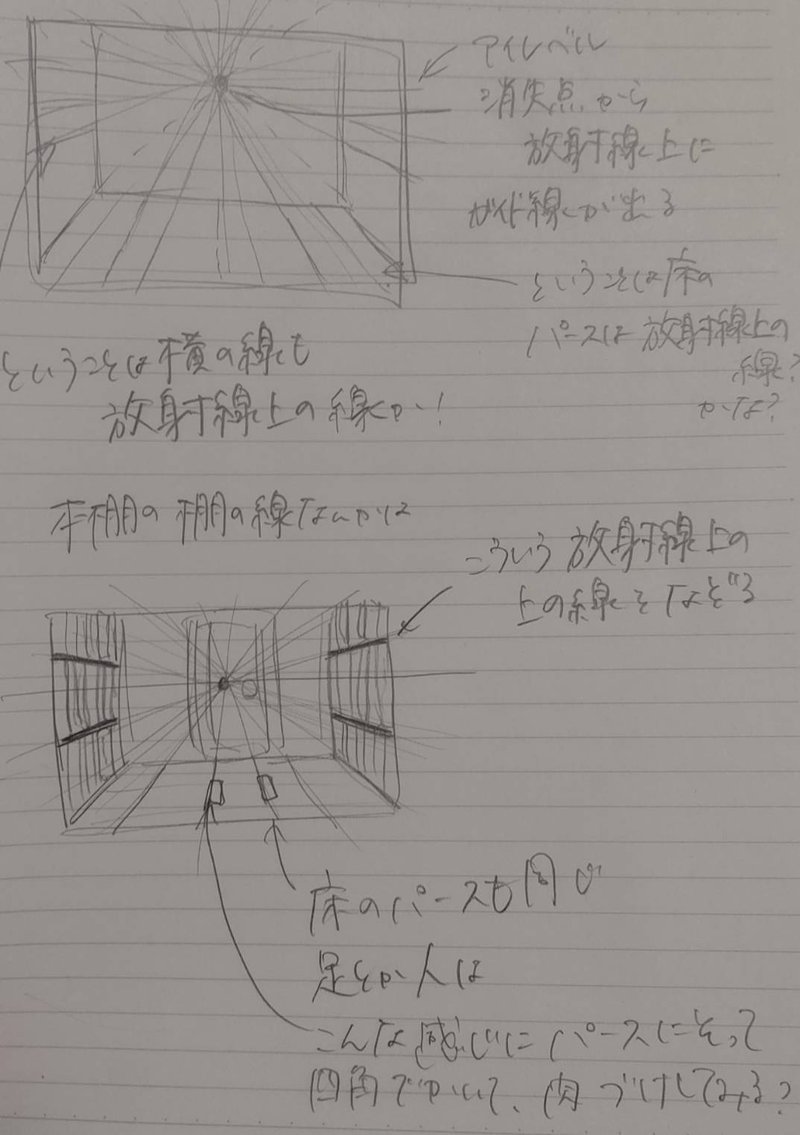 アイレベル
消失点から
放射線上に
ガイド線が出る
ということは床の
パースは放射線上の
線?
かな?
ということは横の線も
放射線上の線か!
本棚の棚の線なんかは
こういう放射線上の
上の線をなぞる
床のパースも同じ
足とか人は
こんな感じにパースにそって
四角でかいて、肉づけしてみる?